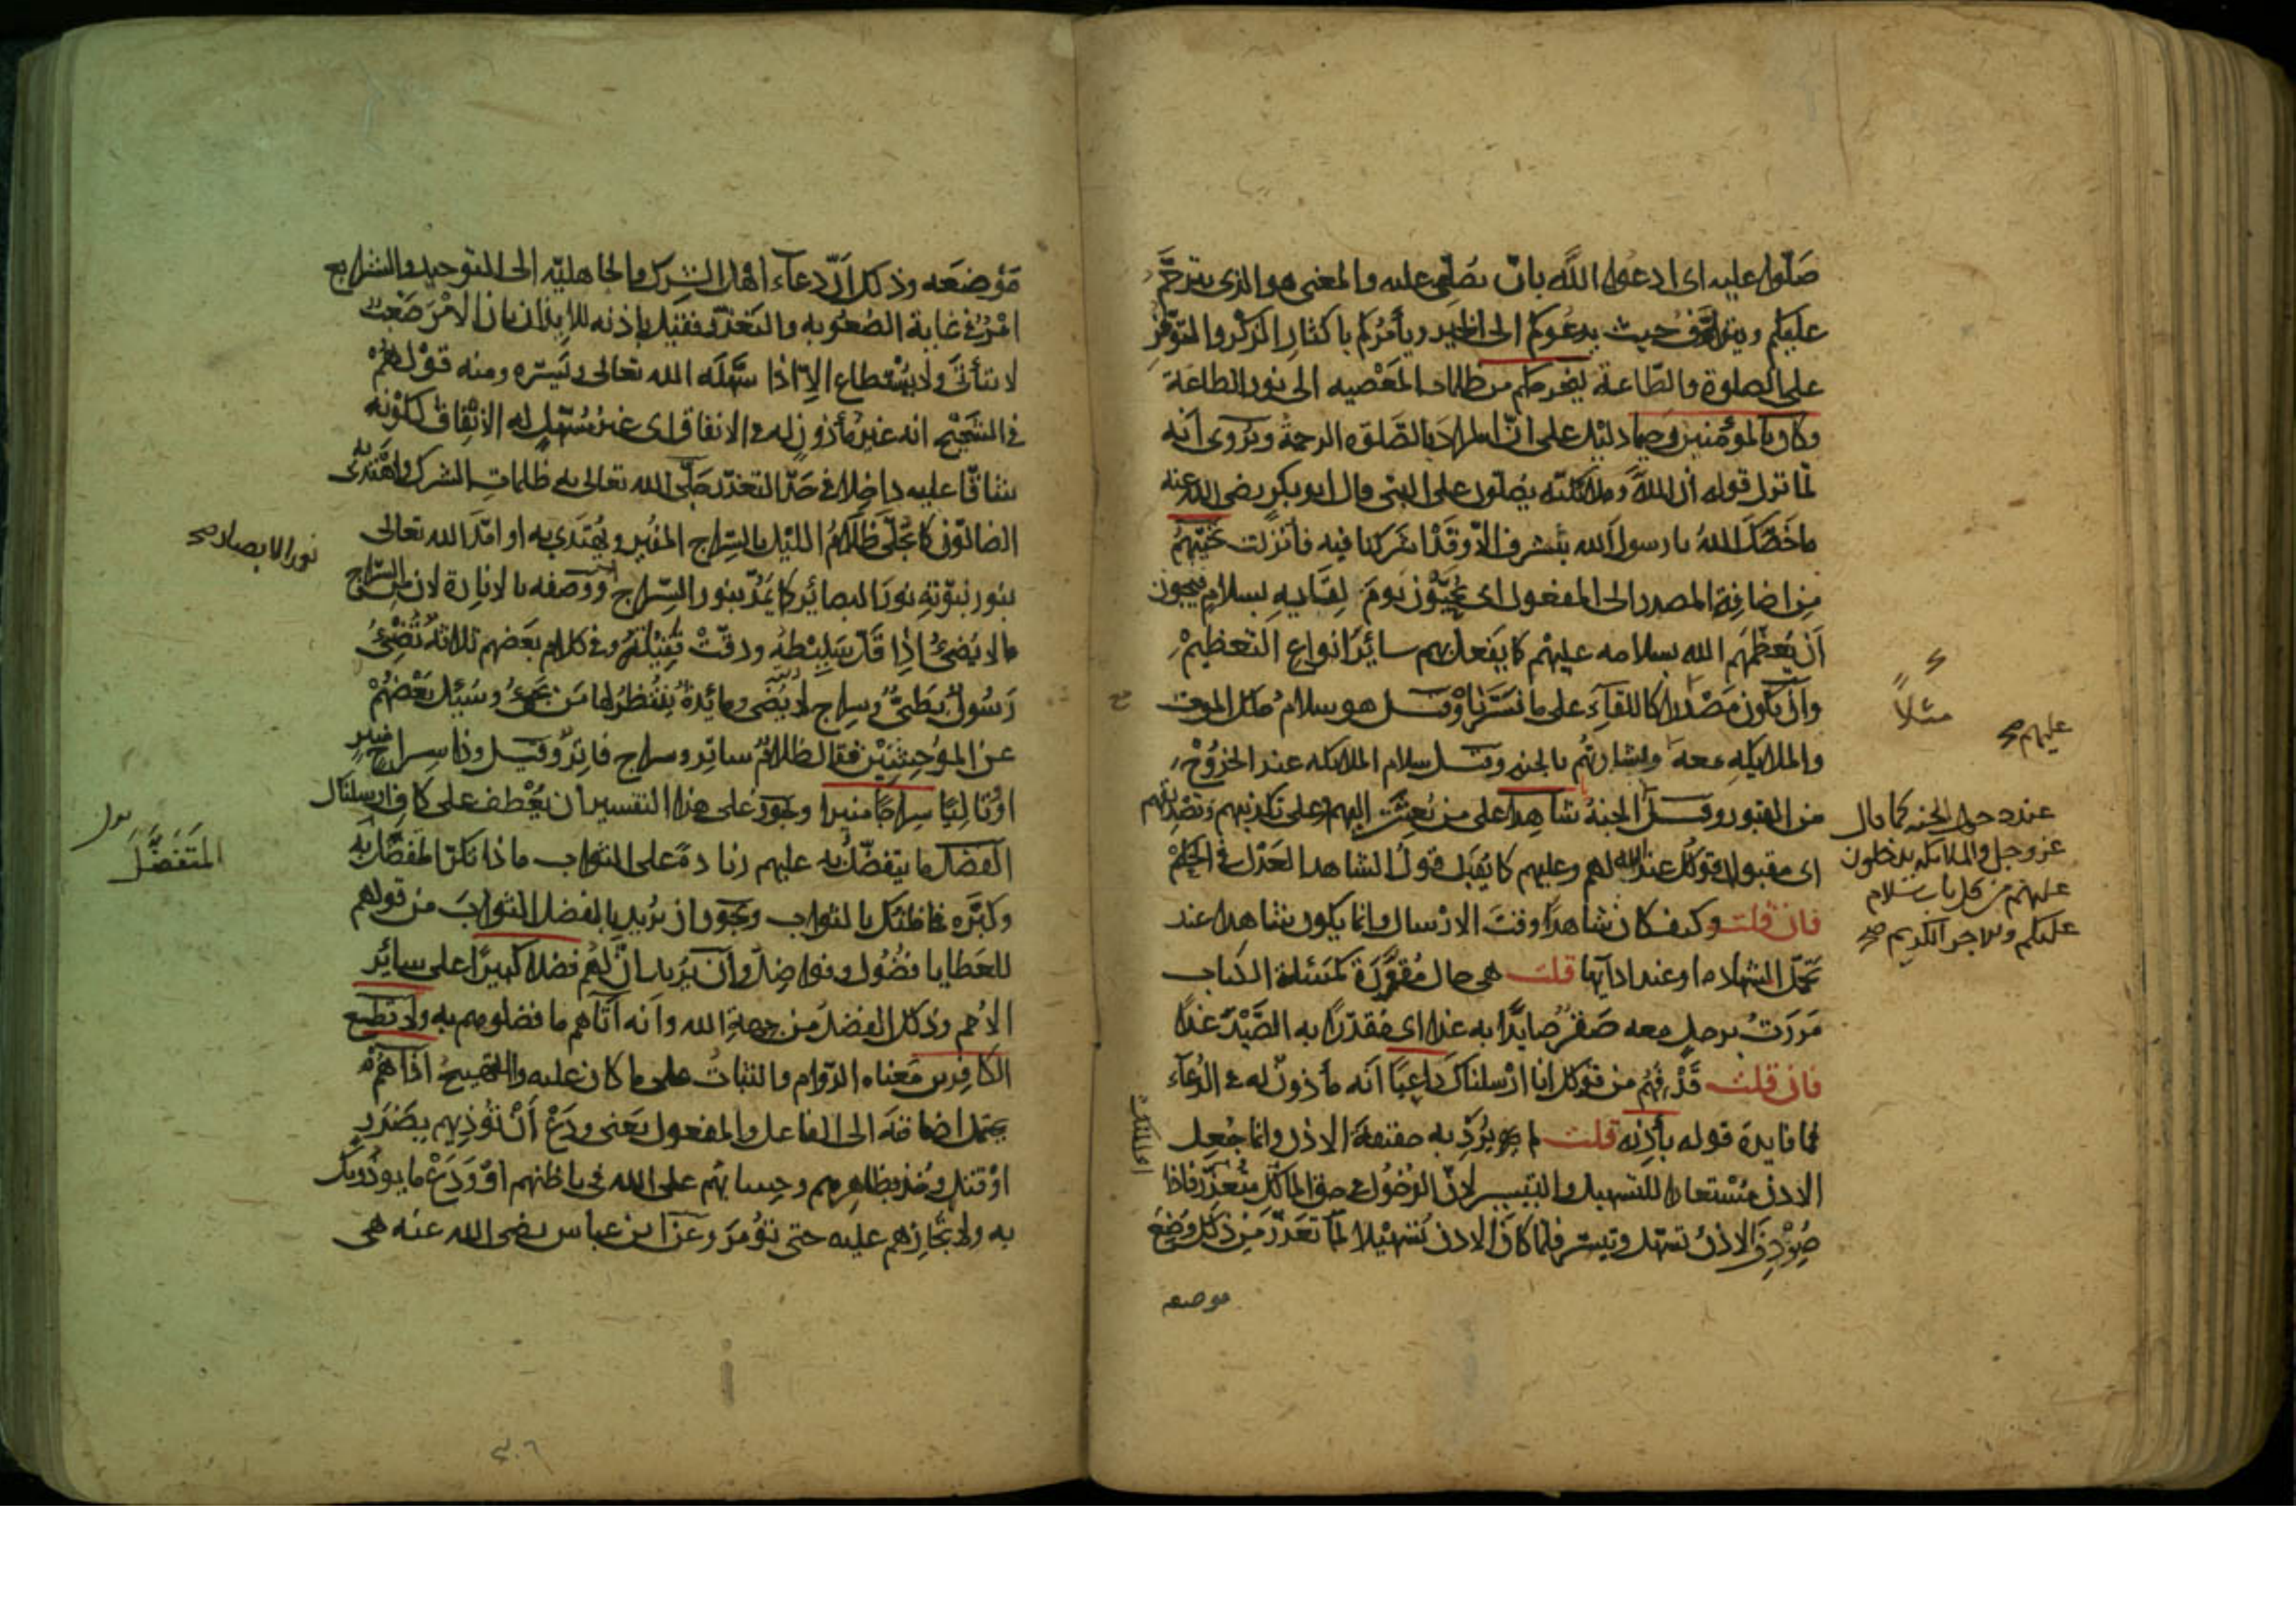 صَلّوا عليه اى ادعوا اللّه بان يصلّى عليه والمعنى هو الذى يترحّم
عليكم ويترأّف حيث يدعوكم الى الخير ويأمركم باكثار الذكر والتوفّر
على الصلوة والطّاعة ليخرجكم من ظلمات المعصيه الى نور الطاعة
وكان بالمؤمنين رحيما دليل على انّ المراد بالصّلوه الرحمة ويروى انه
لمّا نزل قوله ان اللّه وملائكته يصلّون على النبى قال ابو بكر رضى الله عنه
ما خصّك اللّه يا رسول الله بشرف الّا وقد اشركنا فيه فانزلت تحيّتهم
من اضافة المصدر الى المفعول اى يحيّون يوم لقائه بسلام فيجوز
أن يعظّمهم الله بسلامه عليهم كما يفعل بهم سائر انواع التعظيم
وان يكون مَثلا كاللقاء على ما فسّرنا وقيل هو سلام ملك الموت
والملائكه معه عليهم وبشارتهم بالجنه وقيل سلام الملائكه عند الخروج
من القبور وقيل الجنة شاهدا على من بُعثت اليهم وعلى تكذيبهم وتصديقهم
اى مقبولا قولك عند الله لهم وعليهم كما يُقبل قول الشاهد العدل فى الحكم
فان قلت وكيف كان شاهدا وقت الارسال وانما يكون شاهدا عند
تحمّل الشهاده او عند ادائها قلت هى حال مقدّرة كمسئلة الكتاب
مررت برجل معه صقر صايدًا به غدا اى مقدّرًا به الصّيد غدًا
فان قلت قد فهم من قولك انا ارسلناك داعيًا انه مأذون له فى الدعآء
فما فايدة قوله بأذنه قلت لم يُرد به حقيقة الاذن وانما جُعل
الاذن مستعارا للتسهيل والتيسير لانّ الدخول فى حق المالك متعذّر فاذا
صودف الاذن تسهّل وتيسّر فلما كان الاذن تسهيلا لما تعذّر من ذلك وضع
موضعه
مثلاً
عليهم صح
عند دخول الجنه كما قال
عز وجل والملائكه يدخلون
عليهم من كل باب سلام
عليكم والاجر الكريم صح
مَوضعَه وذلك انّ دعآء اهل الشرك والجاهليّه الى التوحيد والشرايع
امر فى غاية الصعوبه والتعذّر فقيل باذنه للايذان بان الامر صعب
لا يتأتّى ولا يستطاع الاّ اذا سهّله الله تعالى ويسّره ومنه قولهم
فى الشحيح انه غير مأذون له فى الانفاق اى غير مسهّل له الانفاق لكونه
شاقّا عليه داخلا فى حدّ التعذّر جلّى الله تعالى به ظلمات الشرك واهتدى به
الضالّون كما يُجلّى ظلام الليل بالسّراج المنير ويُهتدى به او امدّ الله تعالى
بنور نبوّته نور البصائر كما يُمدّ بنور السّراج ووصفه بالانارة لان من السّراج
نور الابصار صح
ما لا يضىء اذا قلّ سليطه ودقّت فتيلته وفى كلام بعضهم ثلاثة تُضنى
رسول بطىّء وسراج لا يضى ومائدة ينتظر لها من يجىء وسئل بعضهم
عن الموحشَين فقال ظلام ساتر وسراج فاتر وقيل وذا سراج منير
او تاليًا سراجًا منيرا ويجوز على هذا التفسير ان يعطف على كاف ارسلناك
الفضل ما يتفضّل به عليهم زيادة على الثواب واذا ذكر المفضّل به
المتفَضَّل
وكبّره فما ظنّك بالثواب ويجوز ان يريد بالفضل الثواب من قولهم
للعطايا فضول وفواضل وان يريد انّ لهم فضلا كبيرًا على سائر
الامم وذلك الفضل من جهة الله وانه اتاهم ما فضلوهم به ولا تطع
الكافرين معناه الدّوام والثبات على ما كان عليه والتهييج اذاهم
يحتمل اضافته الى الفاعل والمفعول يعنى ودع أن تؤذيهم بضرر
او قتل وخذ بظاهرهم وحسابهم على الله فى باطنهم او ودع ما يوذونك
به ولا تجازهم عليه حتى تؤمر وعن ابن عباس رضى الله عنه هى